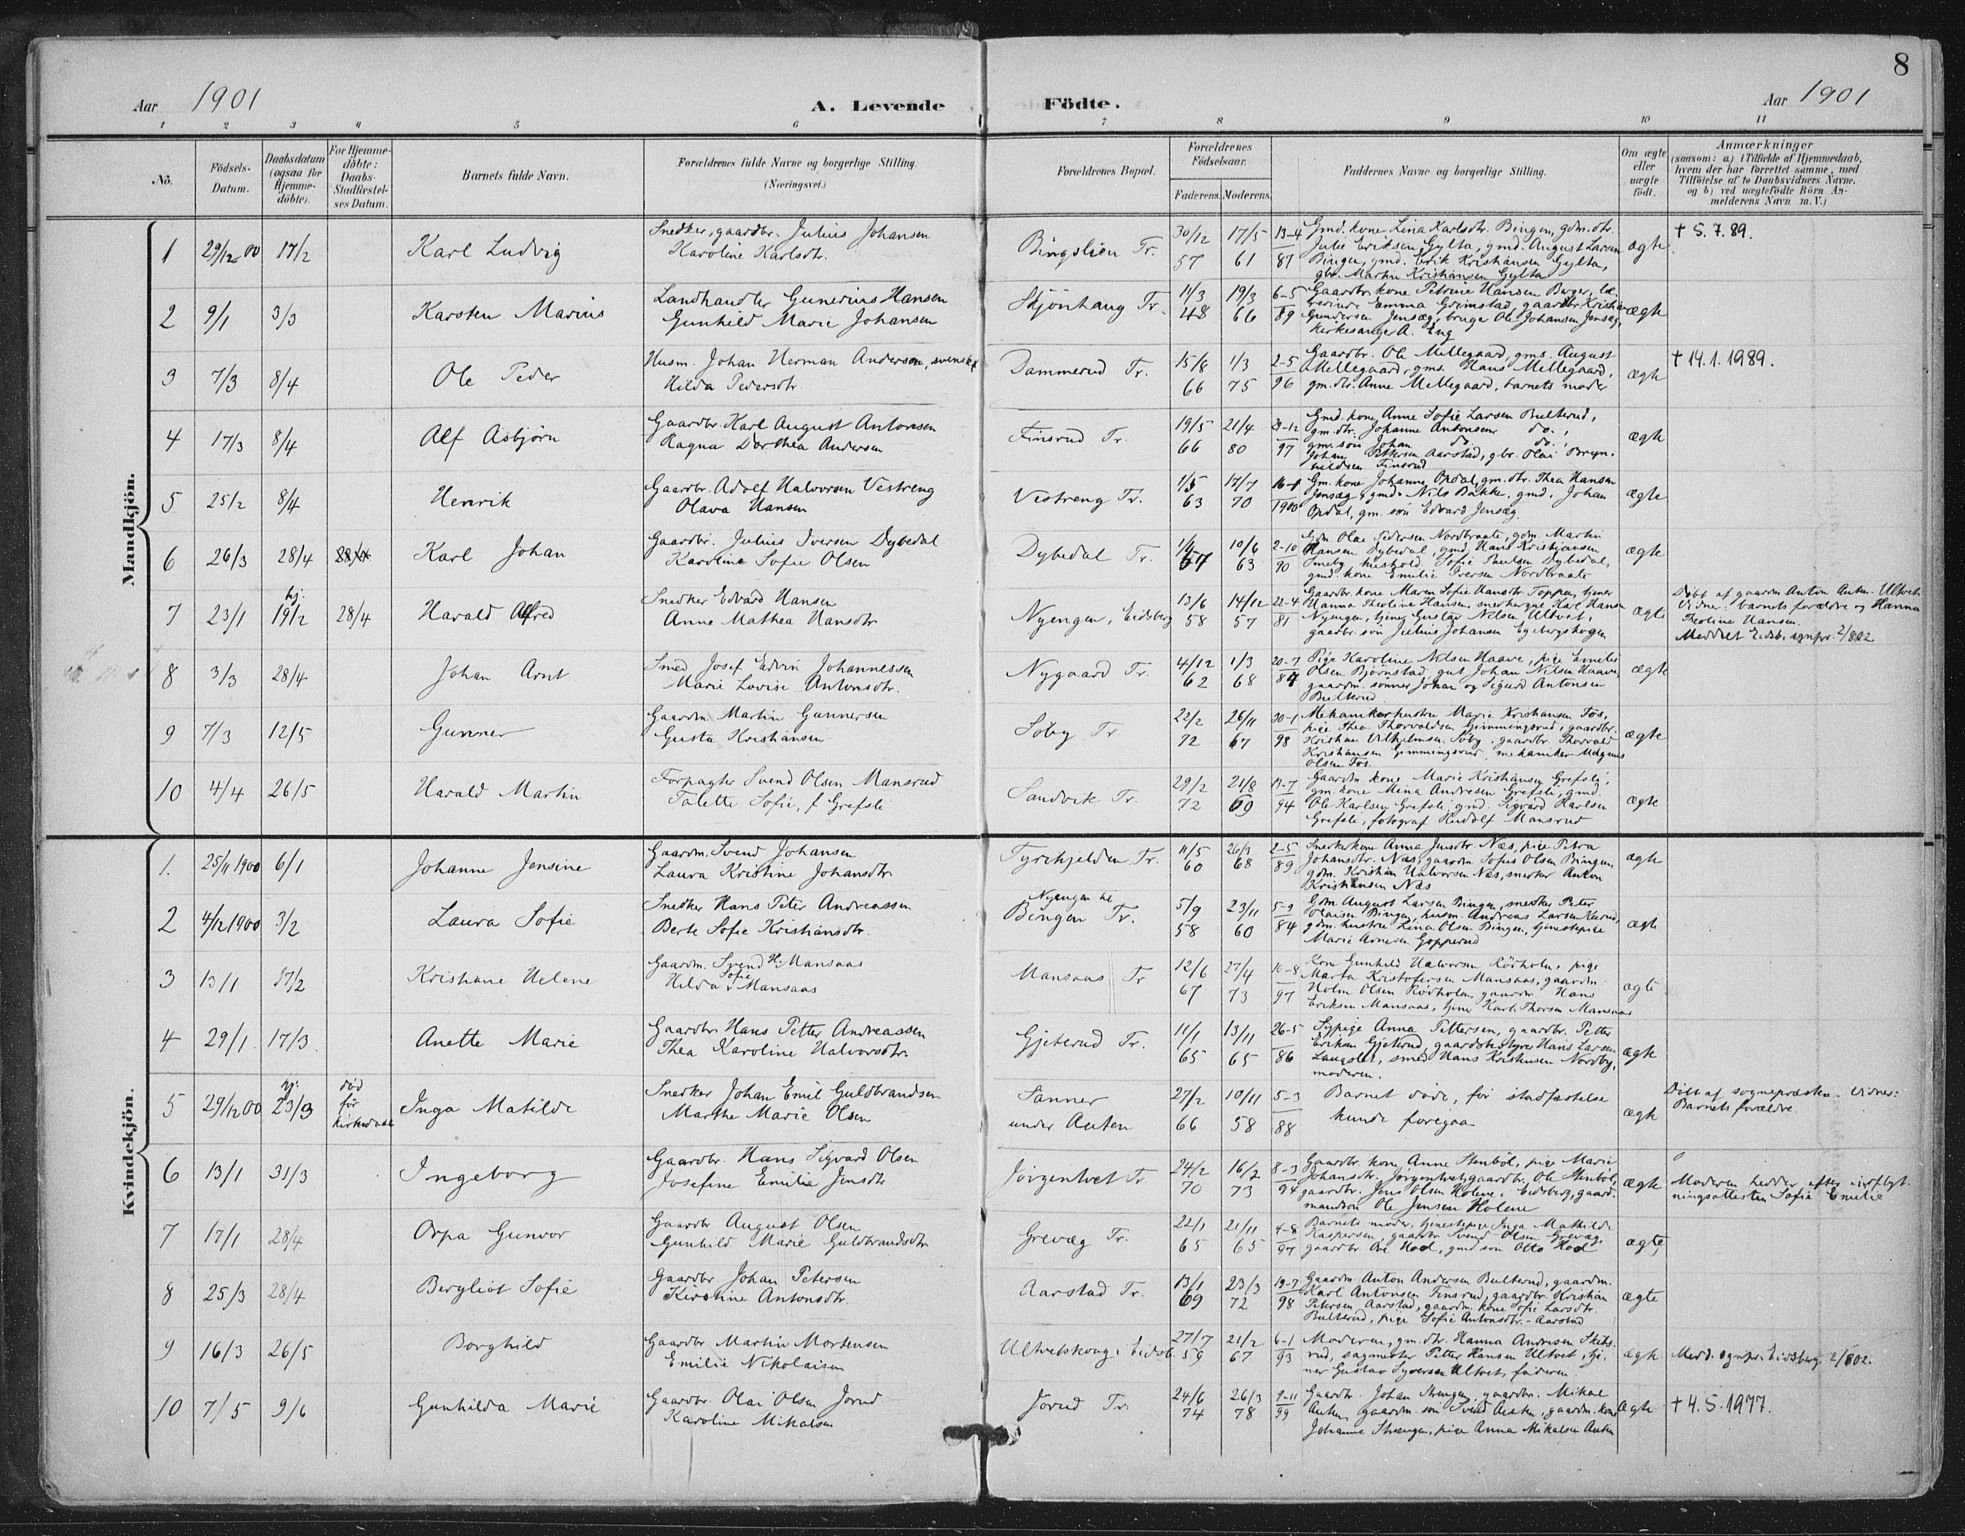 8
Aar 1901 A. Levende Födte. Aar 1901
1 2 3 4 5 6 7 8 9 10 11
No. Födsels-Datum. Daabsdatum (ogsaa for Hjemme-döbte). For Hjemme-döbte: Daabs-Stadfæstel-ses Datum. Barnets fulde Navn. Forældrenes fulde Navne og borgerlige Stilling. (Næringsvei.) Forældrenes Bopæl. Forældrenes Födselsaar. Faderens. Moderens. Faddernes Navne og borgerlige Stilling. Om ægte eller uægte födt. Anmærkninger (saasom: a) i Tilfælde af Hjemmedaab, hvem der har forrettet samme, med Tilföielse af to Daabsvidners Navne, og b) ved uægtefödte Börn An-melderens Navn m. V.)
Mandkjön.
1 29/12 00 17/2 Karl Ludvig Snedker, gaardbr. Julius Johansen
Karoline Karlsdtr. Bingslien Tr. 30/12 57 17/5 61 13-4 81 Gmd. kone Lina Karlsdtr. Bingen, gdm. dtr.
Julie Eriksen Gylta, gmd. August Larsen
Bingen, gmd. Erik Kristiansen Gylta,
gbr. Martin Kristiansen Gylta ægte † 5.7.89.
2 9/1 3/3 Karsten Marius Landhandler Gunerius Hansen
Gunhild Marie Johansen Skjönhaug Tr. 11/3 48 19/3 66 6-5 89 Gaardbr. kone Petrine Hansen Berger, læ-
rerinde Emma Grimstad, gaardbr. Kristian
Gundersen Jensæg, bruger Ole Johansen Jensæg,
kirkesanger A. Eng ægte
3 7/3 8/4 Ole Peder Husm. Johan Herman Anderson, svensker
Hilda Pedersdtr. Dammerud Tr. 15/8 66 1/3 75 2-5 96 Gaardbr. Ole Mellegaard, gms. August
Mellegaard, gms. Hans Mellegaard,
gm. dtr. Anne Mellegaard, barnets moder ægte † 14.1.1989.
4 17/3 8/4 Alf Asbjörn Gaardbr. Karl August Antonsen
Ragna Dorthea Andersen Finsrud Tr. 19/5 66 21/4 80 97 Gmd. kone Anne Sofie Larsen Bulterud,
gm. dtr. Johanne Antonsen do.,
gm. son Johan do. do.,
Johan Pettersen Aarstad, gbr. Olai Bryn-
hildsen Finsrud ægte
5 25/2 8/4 Henrik Gaardbr. Adolf Halvorsen Vestreng
Olava Hansen Vestreng Tr. 1/5 63 17/7 70 1900 Gm. kone Johanne Opdal, gm. dtr. Thea Hansen
Jensæg, gmd. Nils Bakke, gmd. Johan
Opdal, gm. son Edvard Jensæg. ægte
6 26/3 28/4 Karl Johan Gaardbr. Julius Iversen Dybedal
Karoline Sofie Olsen Dybedal Tr. 57 10/6 63 2-10 90 Gdm. Olai Pedersen Nordbraate, gdm. Martin
Hansen Dybedal, gmd. Hans Kristiansen
Smeby, Sofie Paulsen Dybedal,
gmd. kone Emilie Iversen Nordbraate ægte
7 23/1 hj. 19/2 28/4 Harald Alfred Snedker Edvard Hansen
Anne Mathea Hansdtr Nyengen, Eidsberg 13/6 58 14/12 57 22-4 81 Gaardbr. kone Maren Sofie Hansdtr Toppen, tjener
Hanna Theoline Hansen, snerkersvend Karl Hansen
Nyengen, tjener Gustav Nilsen Ultvet,
gaardbr. son Julius Johansen Egebergskogen ægte Döbt af gaardm Anton Ultvet.
Vidner: barnets forældre og Hanna
Theoline Hansen.
Meddelt Eidsb. sognepr. 2/8 02
8 3/3 28/4 Johan Arnt Smed Josef Edvin Johannessen
Marie Lovise Antonsdtr. Nygaard Tr. 4/12 62 1/3 68 20-7 Pige Karoline Nilsen Haave, pige Emilie
Olsen Bjørnstad, gut Johan Nilsen Haave,
gaardm. sönner Johan og Sigurd Antonsen
Bulterud ægte
9 7/3 12/5 Gunner Gaardm. Martin Gunnersen
Gusta Kristiansen Söby Tr 22/2 72 26/11 67 30-1 98 Mekanikerhustru Marie Kristiansen Fös,
pige Thea Thorvaldsen Gimmingsrud, gaardbr.
Kristian Vilhelmsen Söby, gaardbr. Thorvald
Kristiansen Gimmingsrud, mekaniker Magnus
Olsen Fös. ægte
10 4/4 26/5 Harald Martin Forpagter Svend Olsen Mansrud
Talette Sofie, f. Grefsli Sandvik Tr. 29/2 72 21/8 69 94 Gaardm. kone Marie Kristiansen Grefsli,
gm. kone Mina Andresen Grefsli, gmd.
Ole Karlsen Grefsli, gmd. Sigvard Karlsen
Grefsli, fotograf Rudolf Mansrud ægte
Kvindekjön.
1. 25/11 1900 6/1 Johanne Jensine Gaardm. Svend Johansen
Laura Kristine Johansdtr. Tyrihjelden Tr. 11/5 60 68 2-5 89 Snerkerkone Anna Jensdtr. Næs, pige Petra
Johansdtr. Næs, gaardm. Sofus Olsen Bingen,
gdm. Kristian Halvorsen Næs, snerker Anton
Kristiansen Næs ægte
2 4/12 1900 3/2 Laura Sofie Snedker Hans Peter Andreassen
Berte Sofie Kristiansdtr. Nyengen til
Bingen Tr. 5/9 58 23/11 60 5-9 84 Gdm. August Larsen Bingen, snedker Peter
Olaisen Bingen, husm. Andreas Larsen
gdm. hustru Lina Olsen Bingen, tjenestepige
Marie Arnesen Gopperud ægte
3 13/1 17/2 Kristiane Helene Gaardm. Svend H. Mansaas
Hilda Sofie Mansaas Mansaas Tr 12/6 67 27/4 73 10-8 97 Kone Gunhild Halvorsen Rödholm, pige
Marta Kristofersen Mansaas, gaardm.
Holm Olsen Rödholm, gaardm Hans
Eriksen Mansaas, tjener Karl Thorsen Mansaas ægte
4 29/1. 17/3. Anette Marie Gaardbr Hans Petter Andreassen
Thea Karoline Halvorsdtr. Gjeterud Tr. 11/1 65 13/11 65 26-5 86 Sypige Anna Pettersen, gaardbr. Petter
Eriksen Gjeterud, gaardbestyrer Hans Larsen
smed Hans Kristiansen Nordby,
moderen. ægte
5 29/12 00 hj. 23/3 död
för
kirkedaab Inga Matilde Snedker Johan Emil Guldbrandsen
Marthe Marie Olsen Sanner
under Auten 27/2 66 10/11 58 5-3 88 Barnet döde, för stadfæstelse
kunde foregaa ægte Döbt af sognepræsten. Vidner:
Barnets forældre.
6 13/1 31/3 Ingeborg Gaardbr. Hans Sigvard Olsen
Josefine Emilie Jensdtr Jörgentvet Tr. 24/2 70 16/2 73 8-3 94 Gaardbr. kone Anne Stenböl, pige Marie
Johansdtr. Jörgentvet, gaardbr. Ole Stenböl,
gaardbr. Jens Olsen Holene i Eidsberg, gaard-
mandsön Ole Jensen Holene ægte Moderen hedder efter indflyt-
ningsattesten Sofie Emilie
7 17/1 28/4 Orpa Gunvor Gaardbr August Olsen
Gunhild Marie Guldbrandsdtr Grevæg Tr. 22/1 65 21/11 65 4-8 97 Barnets moder, tjenestepige Inga Mathilde
Kaspersen, gaardbr Svend Olsen Grevæg,
gaardbr Ole Hod, gmd son Otto Hod ægte,
8 25/3 28/4 Bergliot Sofie Gaardbr Johan Petersen
Kirstine Antonsdtr. Aarstad Tr. 13/1 69 23/3 72 19-7 98 Gaardm. Anton Andersen Bulterud, gaardm.
Karl Antonsen Finsrud, gaardbr. Kristian
Petersen Aarstad, gaardm. kone Sofie Larsdtr.
Bulterud, pige Sofie Antonsdtr. - Aarstad ægte
9 16/3 26/5 Borghild Gaardbr Martin Mortensen
Emilie Nikolaisen Ultvetskoug i Eidsb. 27/7 59 21/2 67 6-1 93 Moderen, gm. dtr. Hanna Andresen Skits-
rud, sagmester Peter Hansen Ultvet, tje-
ner Gustav Syversen Ultvet, faderen ægte Medd. sognpr. i Eidsberg 2/8 02.
10 7/5 9/6 Gunhilda Marie Gaardbr. Olai Olsen Jorud
Karoline Mikalsen Jorud Tr. 24/6 74 26/3 78 9-11 99 Gaardbr. Johan Strengen, gaardbr. Mikal
Auten, gaardm. son Svend Auten, gaardm. kone
Johanne Strengen, pige Anna Mikalsen Auten ægte † 4.5.1977.